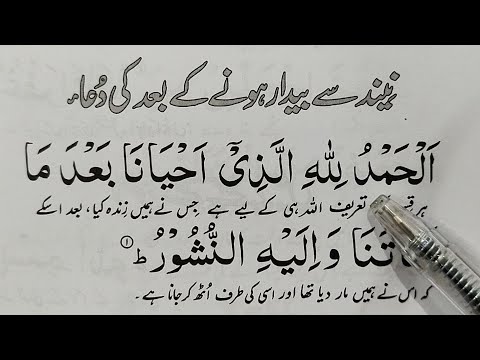 نیند سے بیدار ہونے کے بعد کی دُعا۔
اَلْحَمْدُ لِلّٰهِ الَّذِیْۤ اَحْیَانَا بَعْدَ مَا
ہر تعریف اللہ ہی کے لیے ہے جس نے ہمیں زندہ کیا، بعد اسکے
وَاِلَیْهِ النُّشُوْرُ ط ①
کہ اس نے ہمیں مار دیا تھا اور اسی کی طرف اُٹھ کر جانا ہے۔